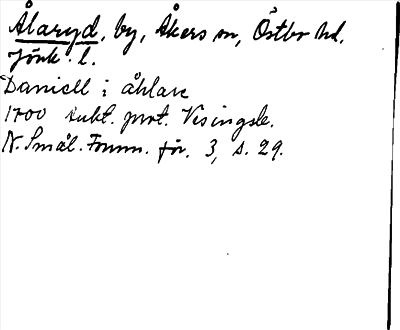 Ålaryd, by, Åkers sn, Östbo hd.
Jönk. l.
Daniell i åhlare
1700 dubl. prot. Visingsb.
N. Smål. Fornm. för. 3, s. 29.